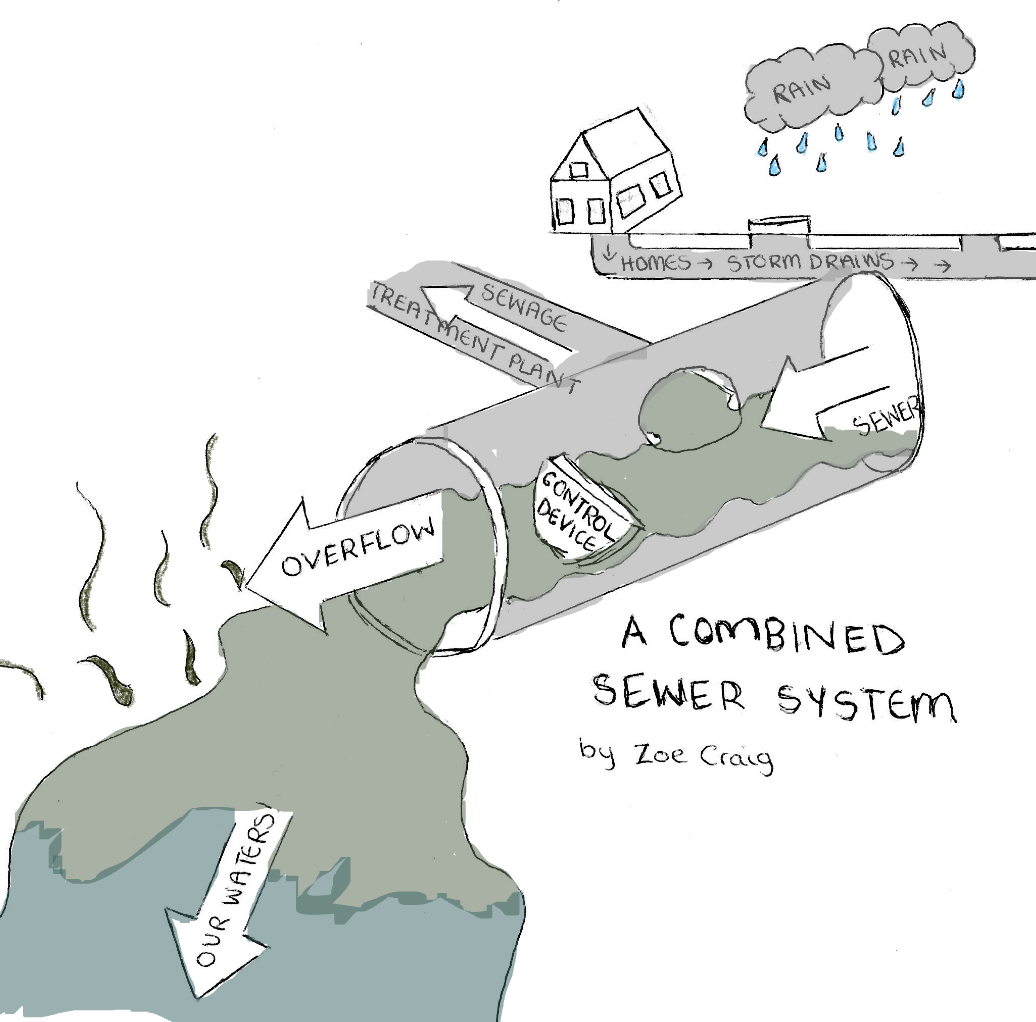 RAIN
RAIN
HOMES → STORM DRAINS → →
SEWAGE
TREATMENT PLANT
SEWER
CONTROL
DEVICE
OVERFLOW
A COMBINED
SEWER SYSTEM
by Zoe Craig
OUR WATERS